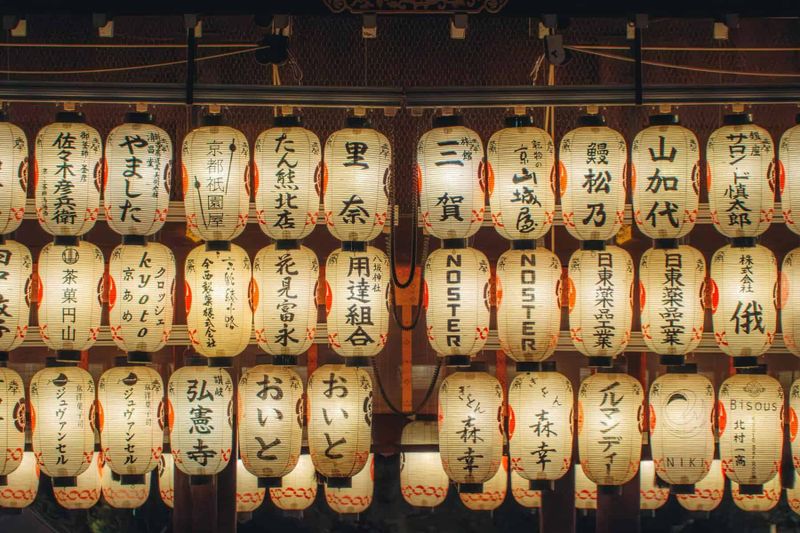 佐々木彦兵衛
やました
京都祇園屋
たん熊北店
里奈
旅館
三賀
乾物の
京山城屋
鰻松乃
山加代
サロンド慎太郎
茶菓円山
クロッシェ
京あめ
kyoto
今西製菓株式会社
花見富永
八坂神社
用達組合
NOSTER
NOSTER
日東薬品工業
日東薬品工業
株式会社
俄
ジュヴァンセル
ジュヴァンセル
弘憲寺
おいと
おいと
ぎをん
森幸
ぎをん
森幸
ルマンディ
NIKI
Bisous
北村